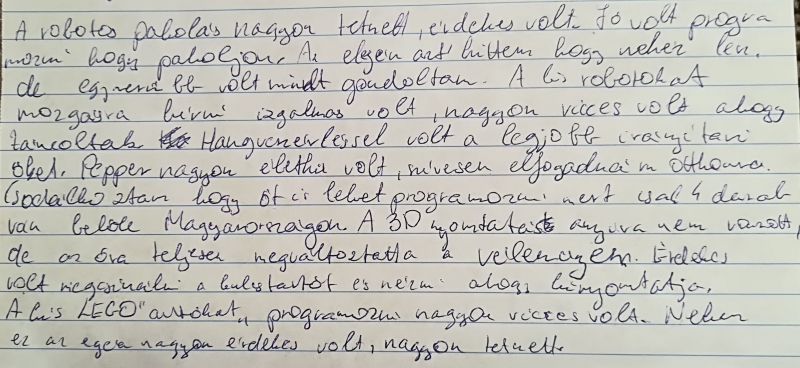 A robotos pakolás nagyon tetszett, érdekes volt. Jó volt progra
mozni hogy pakoljon. Az elején azt hittem hogy nehéz lesz.
de egyszerűbb volt mindt gondoltam. A kis robotokat
mozgásra bírni izgalmas volt, nagyon vicces volt ahogy
táncoltak Hangvezérléssel volt a legjobb irányítani
őket. Pepper nagyon élethű volt, szívesen elfogadnám otthonra.
Csodálkoztam hogy őt is lehet programozni mert csak 4 darab
van belőle Magyarországon. A 3D nyomtatást annyira nem
de az óra teljesen megváltoztatta a véleményem. Érdekes
volt megcsinálni a kulcstartót és nézni ahogy kinyomtatja.
A kis "LEGO" autókat programozni nagyon vicces volt. Nekem
ez az egész nagyon érdekes volt, nagyon tetszett.